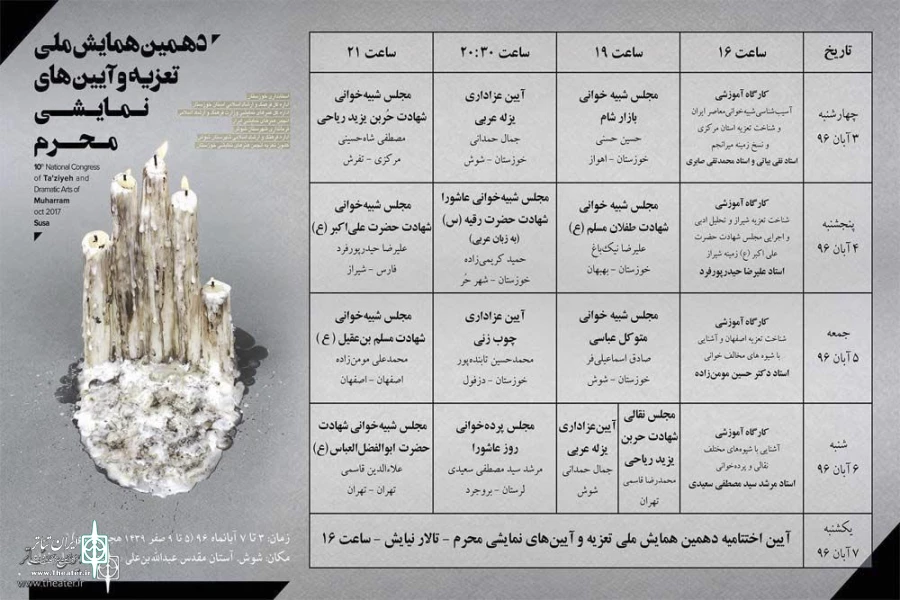 دهمین همایش ملی
تعزیه و آیین‌های
نمایشی
محرم
10th National Congress
of Ta'ziyeh and
Dramatic Arts of
Muharram
oct 2017
Susa
تاریخ
ساعت ۱۶
ساعت ۱۹
ساعت ۲۰:۳۰
ساعت ۲۱
چهارشنبه
۳ آبان ۹۶
کارگاه آموزشی
آسیب‌شناسی شبیه‌خوانی معاصر ایران
و شناخت تعزیه استان مرکزی
و نسخ زمینه میرانجم
استاد تقی بیاتی و استاد محمدتقی صابری
مجلس شبیه خوانی
بازار شام
حسین حسنی
خوزستان - اهواز
آیین عزاداری
یزله عربی
جمال حمدانی
خوزستان - شوش
مجلس شبیه‌خوانی
شهادت حُربن یزید ریاحی
مصطفی شاه‌حسینی
مرکزی - تفرش
پنجشنبه
۴ آبان ۹۶
کارگاه آموزشی
شناخت تعزیه شیراز و تحلیل ادبی
و اجرایی مجلس شهادت حضرت
علی اکبر (ع) زمینه شیراز
استاد علیرضا حیدرپورفرد
مجلس شبیه خوانی
شهادت طفلان مسلم (ع)
علیرضا نیک‌باغ
خوزستان - بهبهان
مجلس شبیه‌خوانی عاشورا
شهادت حضرت رقیه (س)
(به زبان عربی)
حمید کریمی‌زاده
خوزستان - شهر حُر
مجلس شبیه‌خوانی
شهادت حضرت علی‌اکبر (ع)
علیرضا حیدرپورفرد
فارس - شیراز
جمعه
۵ آبان ۹۶
کارگاه آموزشی
شناخت تعزیه اصفهان و آشنایی
با شیوه های مخالف خوانی
استاد دکتر حسین مومن‌زاده
مجلس شبیه خوانی
متوکل عباسی
صادق اسماعیلی‌فر
خوزستان - شوش
آیین عزاداری
چوب زنی
محمدحسین تابنده‌پور
خوزستان - دزفول
مجلس شبیه‌خوانی
شهادت مسلم بن‌عقیل (ع)
محمدعلی مومن‌زاده
اصفهان - اصفهان
شنبه
۶ آبان ۹۶
کارگاه آموزشی
آشنایی با شیوه‌های مختلف
نقالی و پرده‌خوانی
استاد مرشد سید مصطفی سعیدی
مجلس نقالی
شهادت حربن
یزید ریاحی
محمدرضا قاسمی
تهران
آیین‌عزاداری
یزله عربی
جمال حمدانی
شوش
مجلس پرده‌خوانی
روز عاشورا
مرشد سید مصطفی سعیدی
لرستان - بروجرد
مجلس شبیه‌خوانی شهادت
حضرت ابوالفضل‌العباس(ع)
علاءالدین قاسمی
تهران - تهران
یکشنبه
۷ آبان ۹۶
آیین اختتامیه دهمین همایش ملی تعزیه و آیین‌های نمایشی محرم - تالار نیایش - ساعت ۱۶
زمان: ۳ تا ۷ آبانماه ۹۶ (۵ تا ۹ صفر ۱۴۳۹
مکان: شوش، آستان مقدس عبدالله‌بن‌علی
ایران تئاتر
www.theater.ir
www.theater.ir